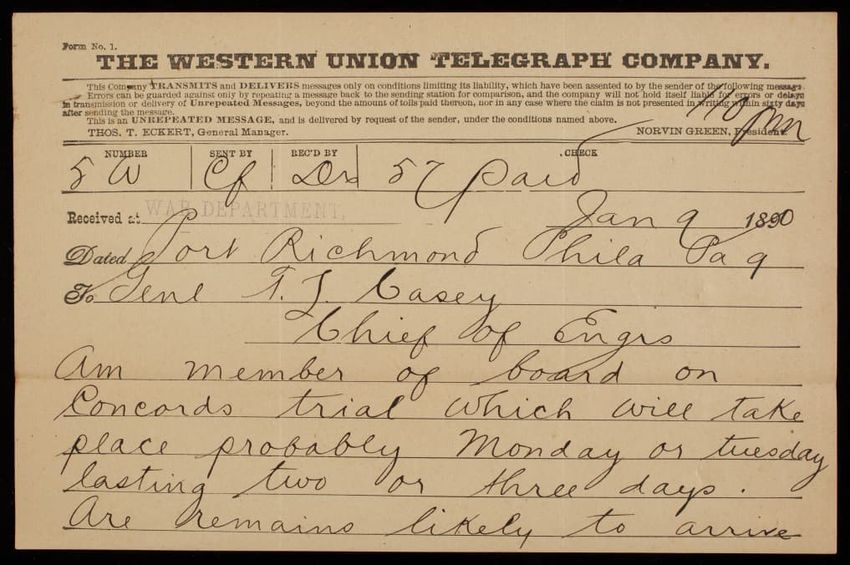 Form No. 1.
THE WESTERN UNION TELEGRAPH COMPANY.
This Company TRANSMITS and DELIVERS messages only on conditions limiting its liability, which have been assented to by the sender of the following message.
Errors can be guarded against only by repeating a message back to the sending station for comparison, and the company will not hold itself liable for errors or delays
in transmission or delivery of Unrepeated Messages, beyond the amount of tolls paid thereon, nor in any case where the claim is not presented in writing within sixty days
after sending the message.
This is an UNREPEATED MESSAGE, and is delivered by request of the sender, under the conditions named above.
THOS. T. ECKERT, General Manager. NORVIN GREEN, President.
NUMBER SENT BY REC'D BY CHECK
5 W Cf Dr 57 Paid
Received at WAR DEPARTMENT, Jan 9 1890
Dated Port Richmond Phila Pa 9
To Genl T. L Casey
Chief of Engrs
Am member of board on
Concords trial which will take
place probably Monday or tuesday
lasting two or three days.
Are remains likely to arrive